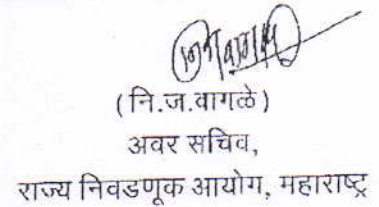 (नि.ज.वागळे)
अवर सचिव,
राज्य निवडणूक आयोग, महाराष्ट्र